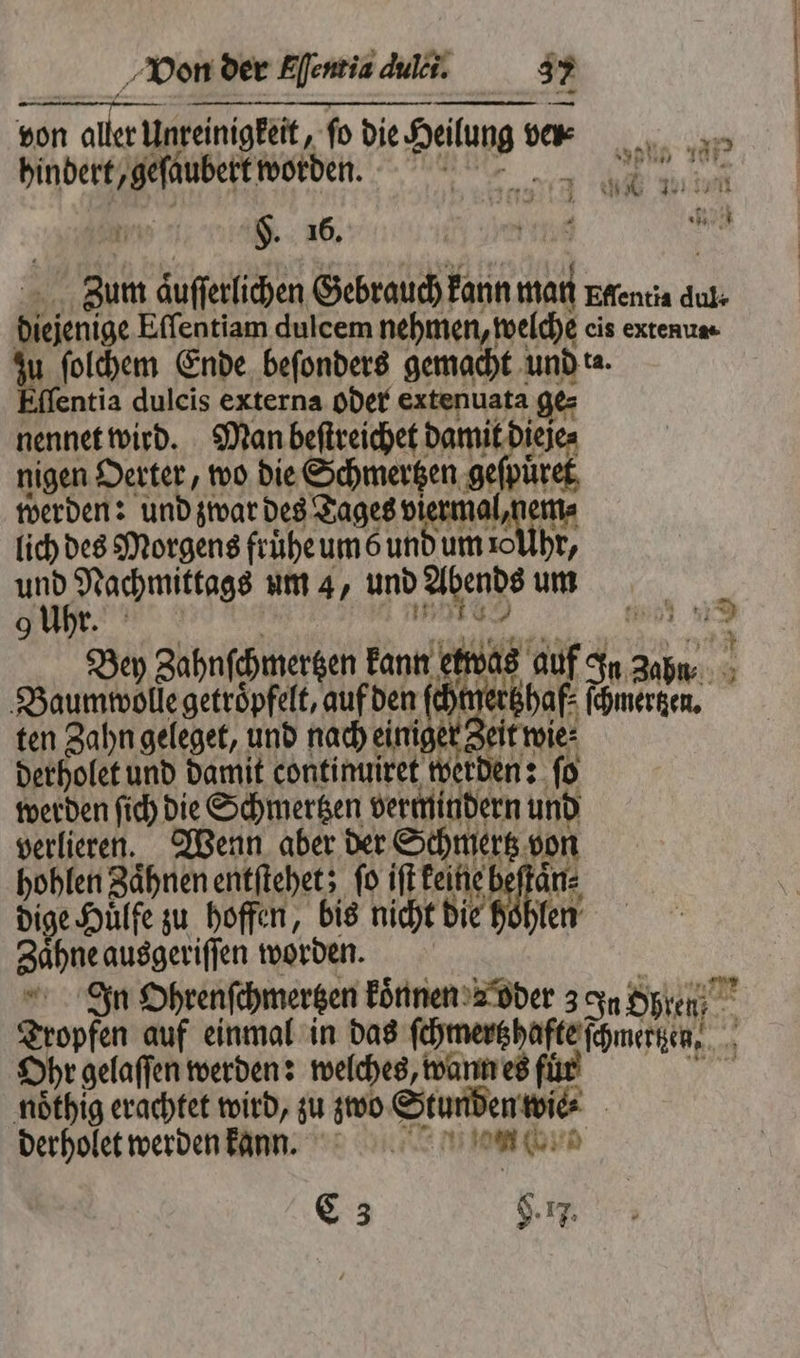 Von der Essentia dulci. 37
von aller Unreinigkeit, so die Heilung ver-
hindert, gesaubert worden.
§. 16.
Zum äusserlichen Gebrauch kann man
diejenige Essentiam dulcem nehmen, welche
zu solchem Ende besonders gemacht und
Essentia dulcis externa oder extenuata ge-
nennet wird. Man bestreichet damit dieje-
nigen Oerter, wo die Schmertzen gespüret
werden: und zwar des Tages viermal, nem-
lich des Morgens frühe um 6 und um 10 Uhr,
und Nachmittags um 4, und Abends um
9 Uhr.
Essentia dul-
cis extenua-
ta.
Bey Zahnschmertzen kann etwas auf
Baumwolle getröpfelt, auf den schmertzhaf-
ten Zahn geleget, und nach einiger Zeit wie-
derholet und damit continuiret werden: so
werden sich die Schmertzen vermindern und
verlieren. Wenn aber der Schmertz von
hohlen Zähnen entstehet; so ist keine bestän-
dige Hülfe zu hoffen, bis nicht die hohlen
Zähne ausgerissen worden.
In Zahn-
schmertzen.
In Ohrenschmertzen können 2 oder 3
Tropfen auf einmal in das schmertzhafte
Ohr gelassen werden: welches, wann es für
nöthig erachtet wird, zu zwo Stunden wie-
derholet werden kann.
In Ohren-
schmertzen.
C 3 §. 17.